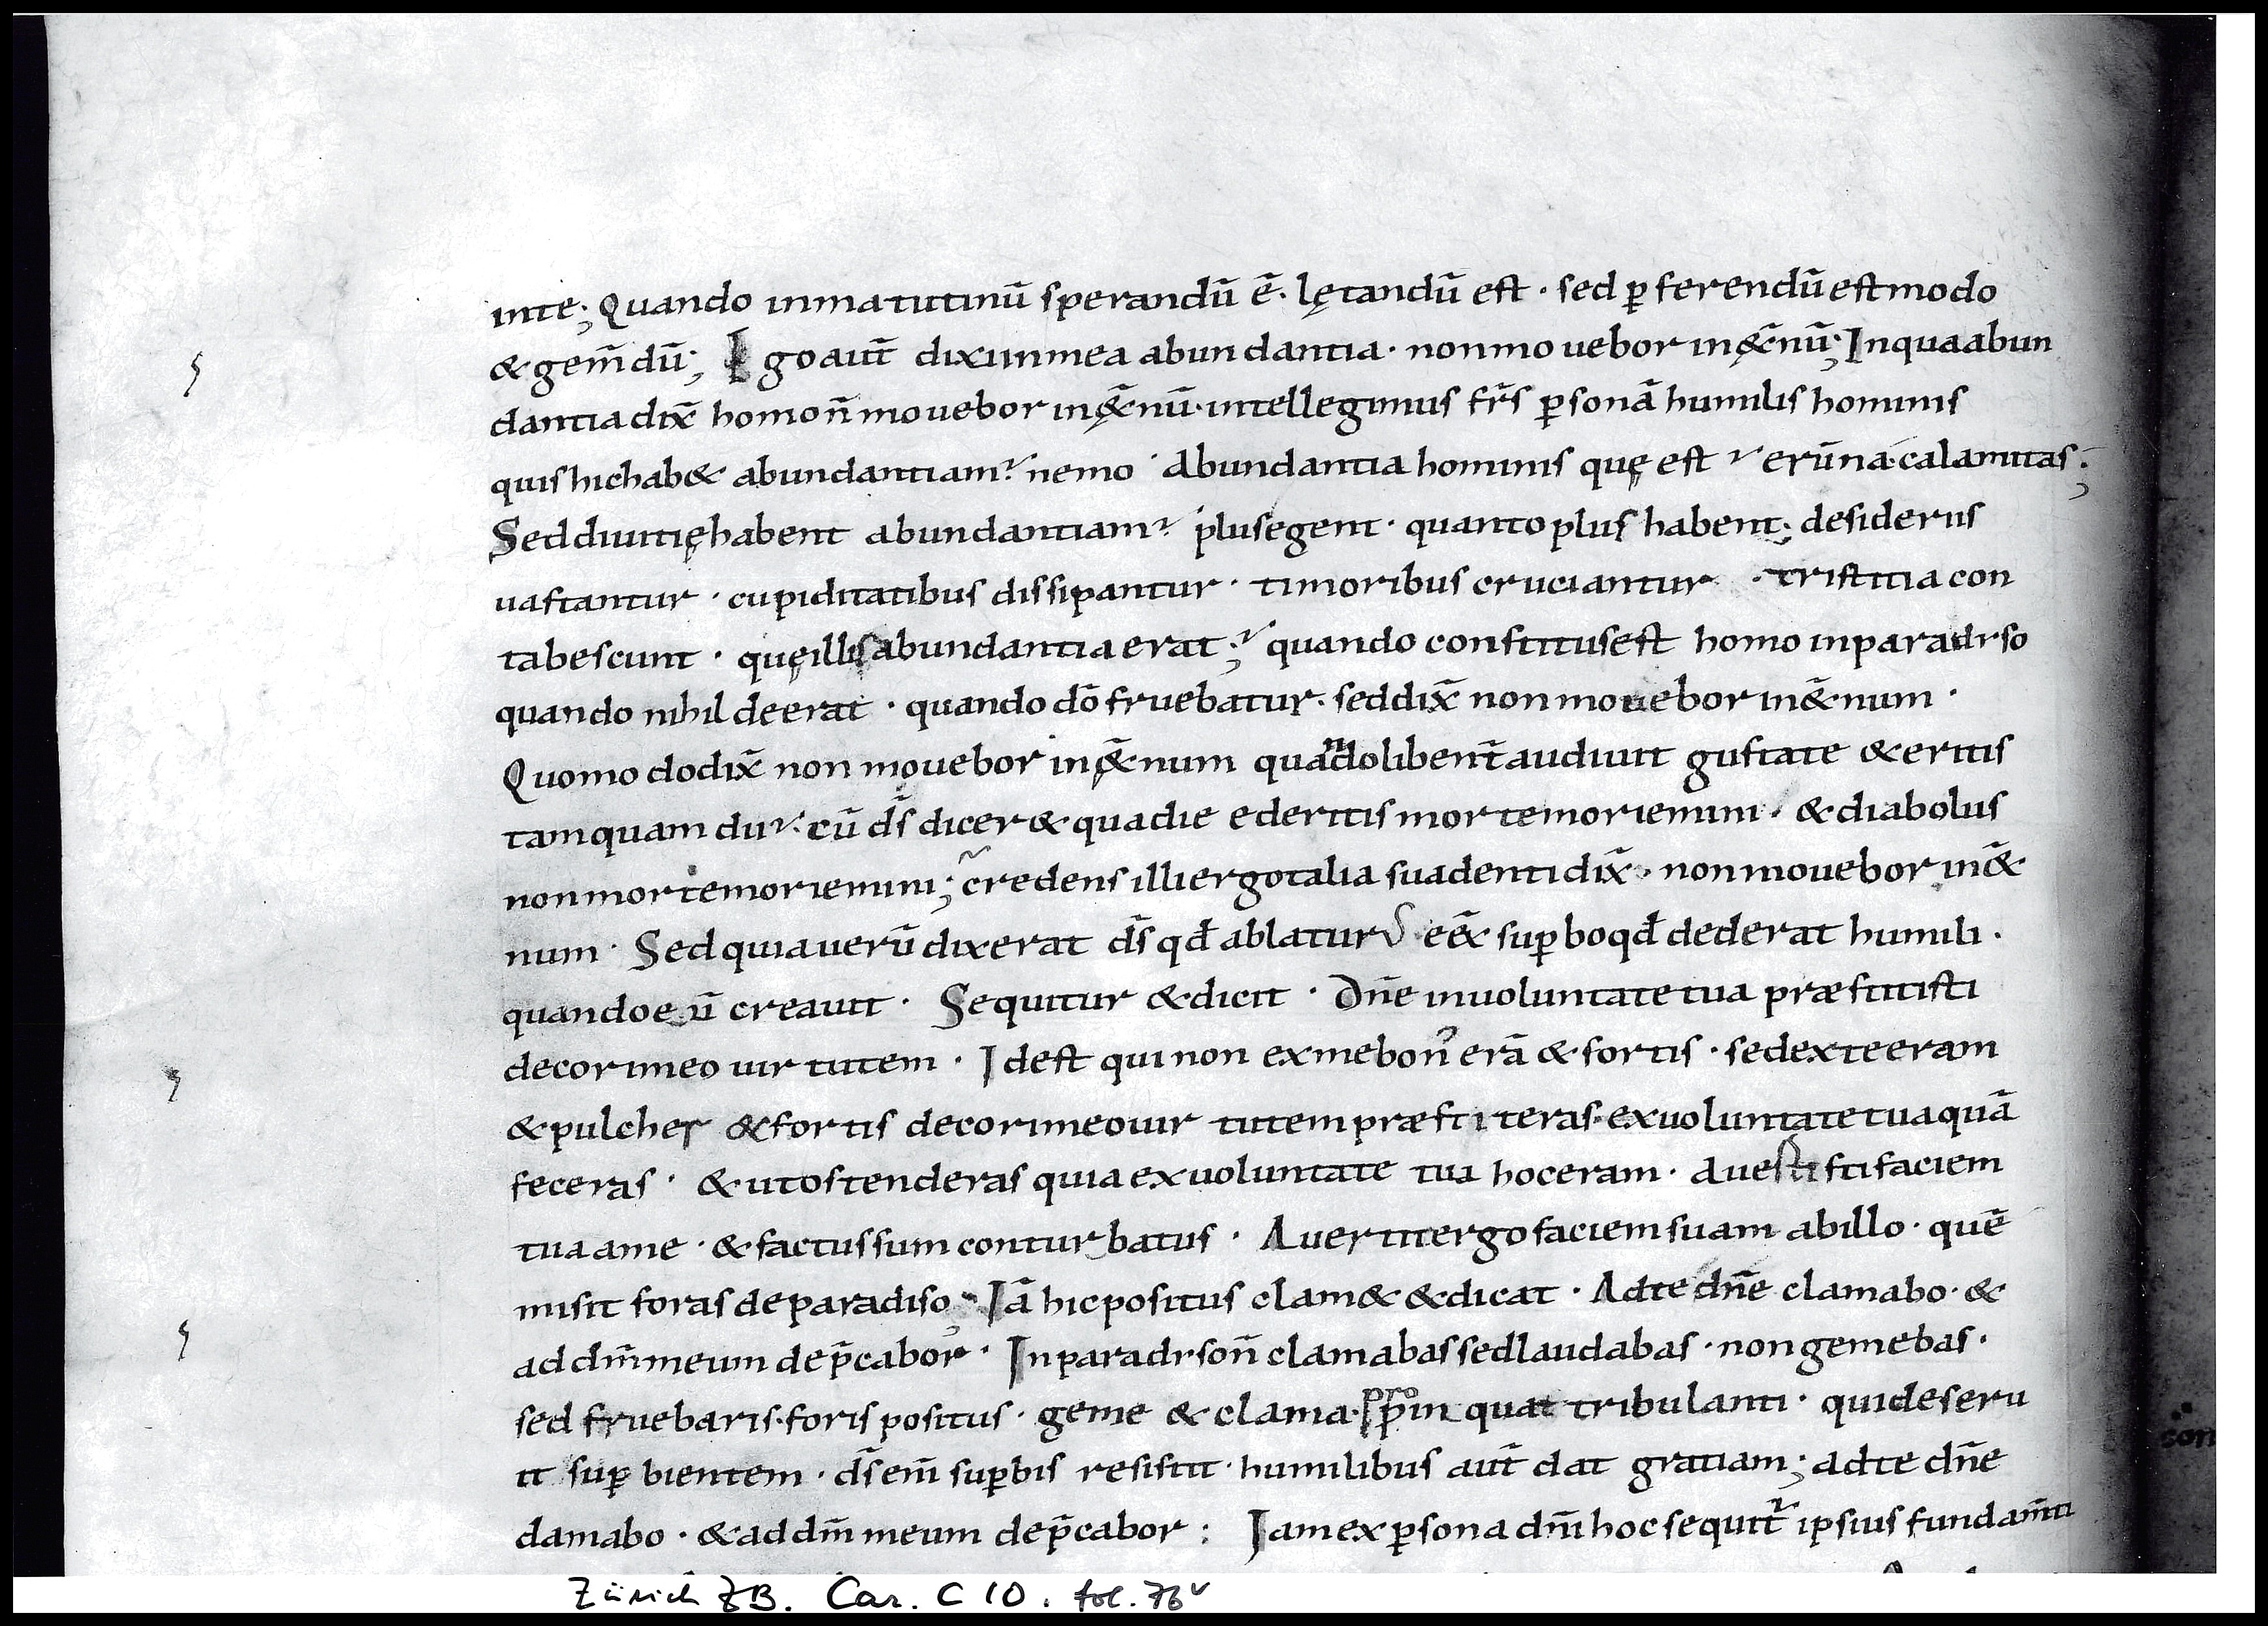 inte; Quando inmatutinū sperandū ē· lętandū est · sed ꝑferendū est modo
& gem̄dū; Ego aut̄ dixi inmea abundantia · nonmouebor inę&̄nū; Inquaabun
dantia dix̄ homo n̄ mouebor inę&̄nū · intellegimus fr̄s ꝑsonā humilis hominis
quis hic hab& abundantiam? nemo · Abundantia hominis quę est? erūna · calamitas;
Sed diuitię habent abundantiam? plus egent · quanto plus habent; desideriis
uastantur · cupiditatibus dissipantur · timoribus cruciantur · tristitia con
tabescunt · quę illis abundantia erat;? quando constitus est homo inparadiso
quando nihil deerat · quando dō fruebatur · sed dix̄ non mouebor in&̄num ·
Quomodo dix̄ non mouebor inę&̄num quando libent̄ audiuit gustate & eritis
tamquam dii? cū d̄s dicer& quadie ederitis morte moriemini · & diabolus
non morte moriemini; credens illi ergo talia suadenti dix̄ · non mouebor in&̄
num · Sed quia uerū dixerat d̄s qd̄ ablaturus eēx suꝑbo qd̄ dederat humili ·
quando eū creauit · Sequitur & dicit · Dn̄e inuoluntate tua præstitisti
decori meo uirtutem · Idest qui non exme bon᷒ erā & fortis · sed exte eram
& pulcher & fortis decori meo uirtutem præstiteras · exuoluntate tua quā
feceras · & ut ostenderas quia ex uoluntate tua hoc eram · Auestisti faciem
tua ame · & factus sum conturbatus · Auertit ergo faciem suam abillo · quē
misit foras deparadiso; Iā hic positus clam& & dicat · Adte dn̄e clamabo · &
ad dm̄ meum dep̄cabor · Inparadiso n̄ clamabas sed laudabas · non gemebas ·
sed fruebaris · foris positus · geme & clama · pro ꝑinquat tribulanti · qui deseru
it suꝑbientem · d̄s em̄ suꝑbis resistit · humilibus aut̄ dat gratiam; adte dn̄e
clamabo · & ad dm̄ meum dep̄cabor : Iam ex ꝑsona dn̄i hoc sequit᷑ ipsius fundam̄ti
Zürich ZB. Car. C 10. fol. 76v